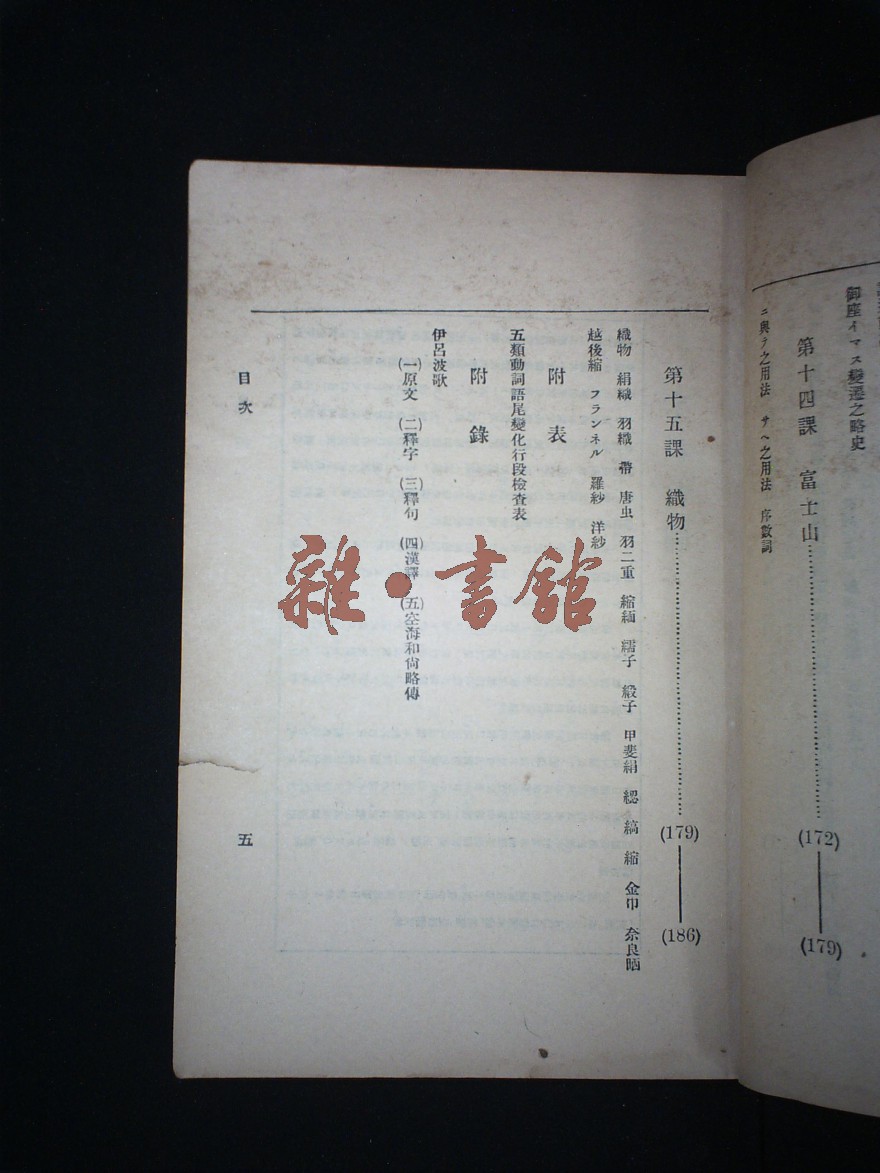 御座イマス變遷之略史
第十四課 富士山……(172)—(179)
ニ與テ之用法 サヘ之用法 序數詞
第十五課 織物……(179)—(186)
織物 絹織 羽織 帶 唐虫 羽二重 縮緬 繻子 緞子 甲斐絹 縞 縮 金巾 奈良晒
越後縮 フランネル 羅紗 洋紗
附表
五類動詞語尾變化行段檢查表
附錄
伊呂波歌
(一)原文 (二)釋字 (三)釋句 (四)漢譯 (五)空海和尙略傳
目次
五
雜·書館